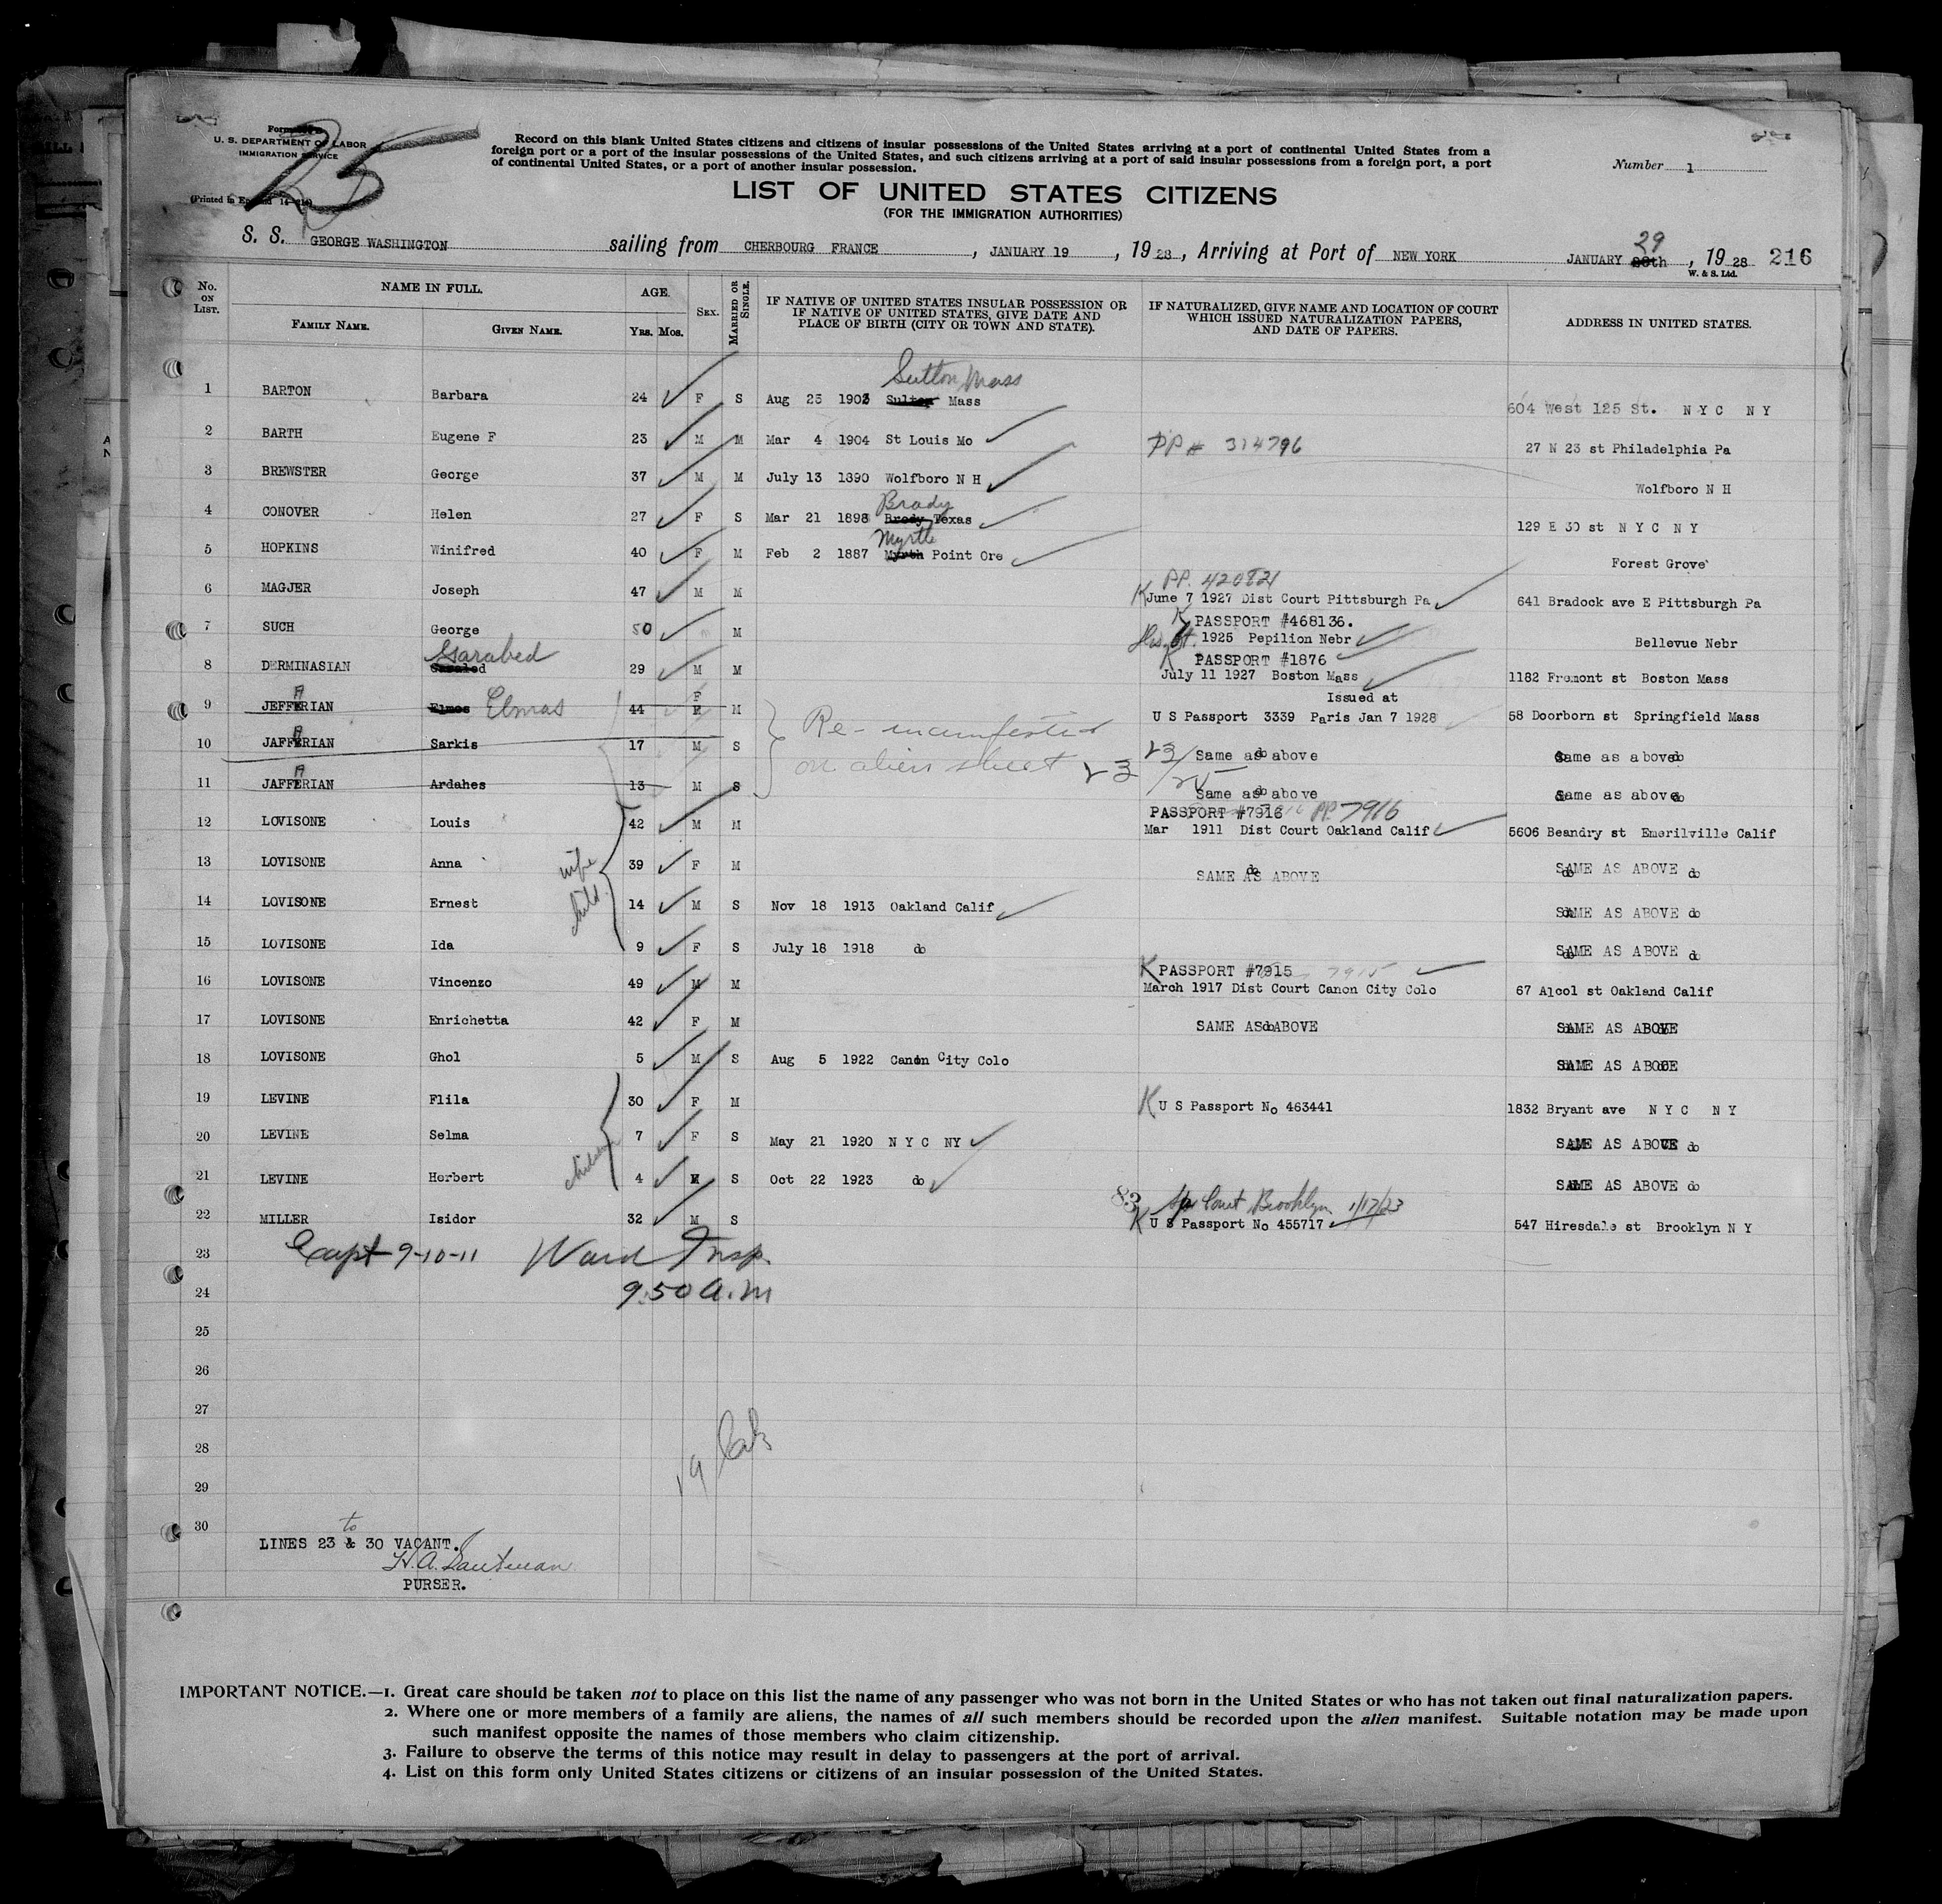 Form
U. S. DEPARTMENT OF LABOR
IMMIGRATION SERVICE
25
Record on this blank United States citizens and citizens of insular possessions of the United States arriving at a port of continental United States from a
foreign port or a port of the insular possessions of the United States, and such citizens arriving at a port of said insular possessions from a foreign port, a port
of continental United States, or a port of another insular possession.
Number 1
LIST OF UNITED STATES CITIZENS
(FOR THE IMMIGRATION AUTHORITIES)
S. S. GEORGE WASHINGTON sailing from CHERBOURG FRANCE , JANUARY 19 , 19 28 , Arriving at Port of NEW YORK JANUARY 29 , 19 28 216
W. & S. Ltd.
No. ON LIST. NAME IN FULL. FAMILY NAME. GIVEN NAME. AGE. YRS. MOS. SEX. MARRIED OR SINGLE. IF NATIVE OF UNITED STATES INSULAR POSSESSION OR IF NATIVE OF UNITED STATES, GIVE DATE AND PLACE OF BIRTH (CITY OR TOWN AND STATE). IF NATURALIZED, GIVE NAME AND LOCATION OF COURT WHICH ISSUED NATURALIZATION PAPERS, AND DATE OF PAPERS. ADDRESS IN UNITED STATES.
Sutton Mass
1 BARTON Barbara 24 F S Aug 25 1903 Mass 604 West 125 St. N Y C N Y
2 BARTH Eugene F 23 M M Mar 4 1904 St Louis Mo PP # 314796 27 N 23 st Philadelphia Pa
3 BREWSTER George 37 M M July 13 1890 Wolfboro N H Wolfboro N H
Brady
4 CONOVER Helen 27 F S Mar 21 1898 Brody Texas 129 E 30 st N Y C N Y
Myrtle
5 HOPKINS Winifred 40 F M Feb 2 1887 Myrth Point Ore Forest Grove
PP. 420821
6 MAGJER Joseph 47 M M K June 7 1927 Dist Court Pittsburgh Pa 641 Bradock ave E Pittsburgh Pa
K PASSPORT #468136.
7 SUCH George 50 M M 1925 Pepilion Nebr Bellevue Nebr
Garabed K PASSPORT #1876
8 DERMINASIAN 29 M M July 11 1927 Boston Mass 1182 Fremont st Boston Mass
Issued at
9 JEFFERIAN Elmos Elmas 44 F M U S Passport 3339 Paris Jan 7 1928 58 Doorborn st Springfield Mass
Re-manifested on aliens sheet 23
10 JAFFERIAN Sarkis 17 M S 23/25 Same as above do Same as above do
11 JAFFERIAN Ardahes 13 M S Same as above do Same as above do
PASSPORT #7916 PP. 7916
12 LOVISONE Louis 42 M M Mar 1911 Dist Court Oakland Calif 5606 Beandry st Emerilville Calif
13 LOVISONE Anna wife 39 F M SAME AS ABOVE do SAME AS ABOVE do
14 LOVISONE Ernest child 14 M S Nov 18 1913 Oakland Calif SAME AS ABOVE do
15 LOVISONE Ida 9 F S July 18 1918 do SAME AS ABOVE do
K PASSPORT #7915 7915
16 LOVISONE Vincenzo 49 M M March 1917 Dist Court Canon City Colo 67 Alcol st Oakland Calif
17 LOVISONE Enrichetta 42 F M SAME AS do ABOVE SAME AS ABOVE
18 LOVISONE Ghol 5 M S Aug 5 1922 Canon City Colo SAME AS ABOVE
19 LEVINE Flila 30 F M K U S Passport No 463441 1832 Bryant ave N Y C N Y
20 LEVINE Selma children 7 F S May 21 1920 N Y C NY SAME AS ABOVE do
21 LEVINE Herbert 4 M S Oct 22 1923 do SAME AS ABOVE do
83 Court Brooklyn 1/17/23
22 MILLER Isidor 32 M S K U S Passport No 455717 547 Hiresdale st Brooklyn N Y
23 Except 9-10-11 Ward Insp.
24 9.50 a.m
25
26
27
28
29
30
LINES 23 to & 30 VACANT.
PURSER.
IMPORTANT NOTICE.—1. Great care should be taken not to place on this list the name of any passenger who was not born in the United States or who has not taken out final naturalization papers.
2. Where one or more members of a family are aliens, the names of all such members should be recorded upon the alien manifest. Suitable notation may be made upon
such manifest opposite the names of those members who claim citizenship.
3. Failure to observe the terms of this notice may result in delay to passengers at the port of arrival.
4. List on this form only United States citizens or citizens of an insular possession of the United States.